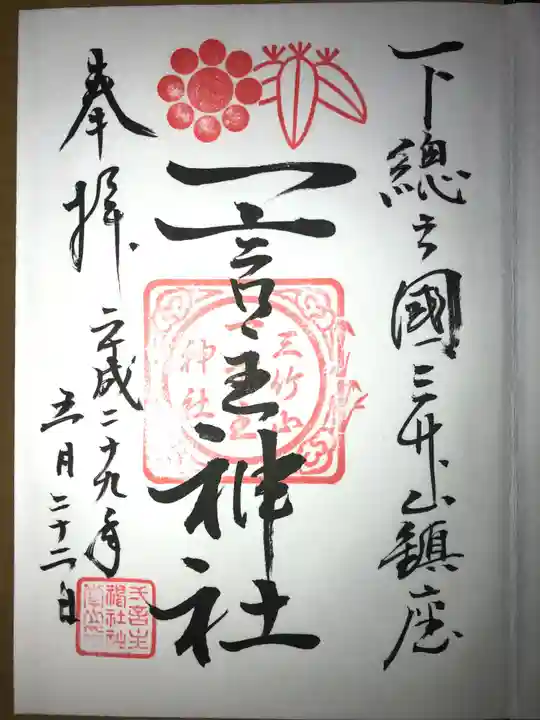 下總之國三竹山鎮座
一言主神社
三竹山
一言主
神社
奉拝
平成二十九年
五月二十二日